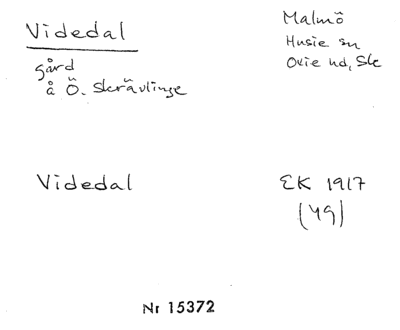 Videdal
gård
å Ö. Skrävlinge
Malmö
Husie sn
Oxie hd, Sk
Videdal
EK 1917
(49)
Nr 15372